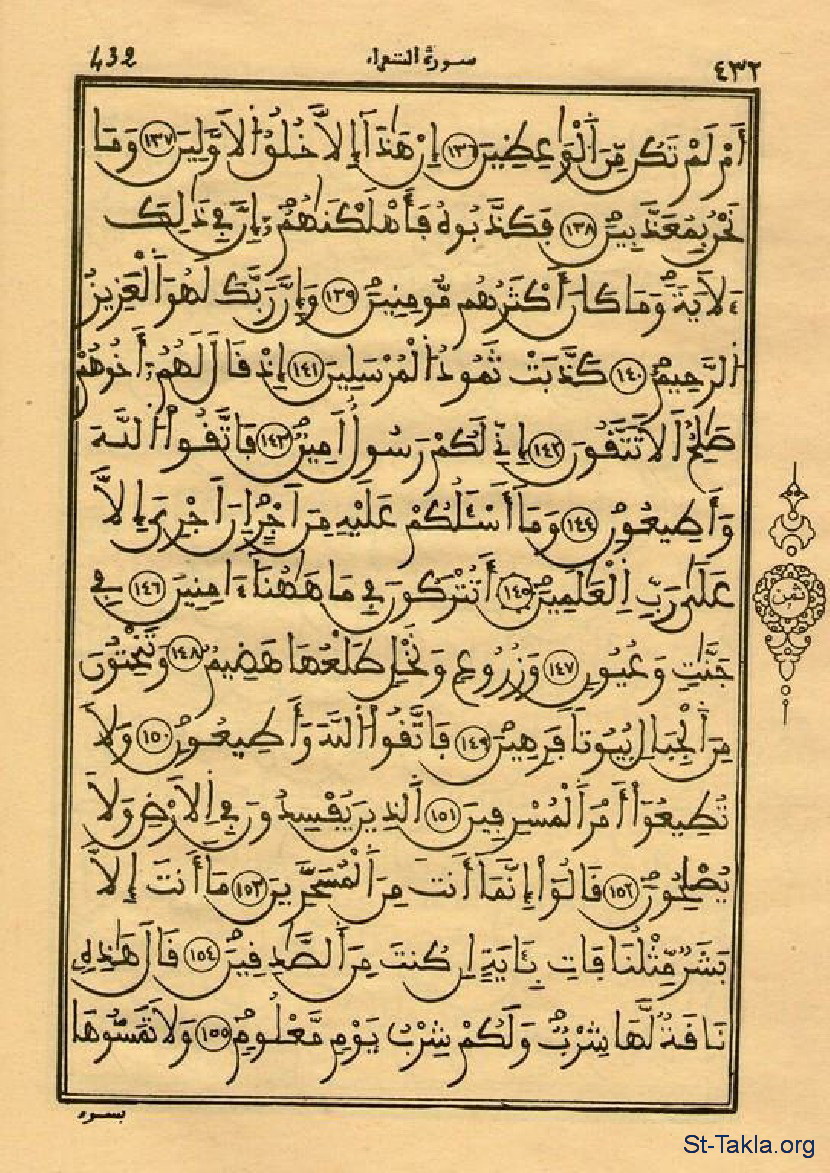 432 سورة الشعراء ٤٣٢
أَمْ لَمْ تَكُن مِّنَ اَ۬لْوَٰعِظِينَ ١٣٦ إِنْ هَٰذَآ إِلَّا خُلُقُ اُ۬لَاوَّلِينَ ١٣٧ وَمَا
نَحْنُ بِمُعَذَّبِينَ ١٣٨ فَكَذَّبُوهُ فَأَهْلَكْنَٰهُمُۥٓ إِنَّ فِے ذَٰلِكَ
ءَلَايَةٗ وَمَا كَانَ أَكْثَرُهُم مُّومِنِينَ ١٣٩ وَإِنَّ رَبَّكَ لَهُوَ اَ۬لْعَزِيزُ
اُ۬لرَّحِيمُ ١٤٠ كَذَّبَتْ ثَمُودُ اُ۬لْمُرْسَلِينَ ١٤١ إِذْ قَالَ لَهُمُۥٓ أَخُوهُمْ
صَٰلِحٌ أَلَا تَتَّقُونَ ١٤٢ إِنِّے لَكُمْ رَسُولٌ أَمِينٌ ١٤٣ فَاتَّقُواْ اُ۬للَّهَ
وَأَطِيعُونِ ١٤٤ وَمَآ أَسْـَٔلُكُمْ عَلَيْهِ مِنَ اَجْرٍ اِنَ اَجْرِيَ إِلَّا
عَلَىٰ رَبِّ اِ۬لْعَٰلَمِينَ ١٤٥ أَتُتْرَكُونَ فِے مَا هَٰهُنَآ ءَامِنِينَ ١٤٦ فِے
جَنَّٰتٖ وَعُيُونٖ ١٤٧ وَزُرُوعٖ وَنَخْلٖ طَلْعُهَا هَضِيمٌ ١٤٨ وَتَنْحِتُونَ
مِنَ اَ۬لْجِبَالِ بُيُوتاٗ فَرِهِينَ ١٤٩ فَاتَّقُواْ اُ۬للَّهَ وَأَطِيعُونِ ١٥٠ وَلَا
تُطِيعُوٓاْ أَمْرَ اَ۬لْمُسْرِفِينَ ١٥١ اَ۬لذِينَ يُفْسِدُونَ فِے اِ۬لَارْضِ وَلَا
يُصْلِحُونَ ١٥٢ قَالُوٓاْ إِنَّمَآ أَنتَ مِنَ اَ۬لْمُسَحَّرِينَ ١٥٣ مَآ أَنتَ إِلَّا
بَشَرٞ مِّثْلُنَا فَاتِ بِـَٔايَةٍ اِن كُنتَ مِنَ اَ۬لصَّٰدِقِينَ ١٥٤ قَالَ هَٰذِهِۦ
نَاقَةٞ لَّهَا شِرْبٞ وَلَكُمْ شِرْبُ يَوْمٖ مَّعْلُومٖ ١٥٥ وَلَا تَمَسُّوهَا
بسوء
ثمن
St-Takla.org